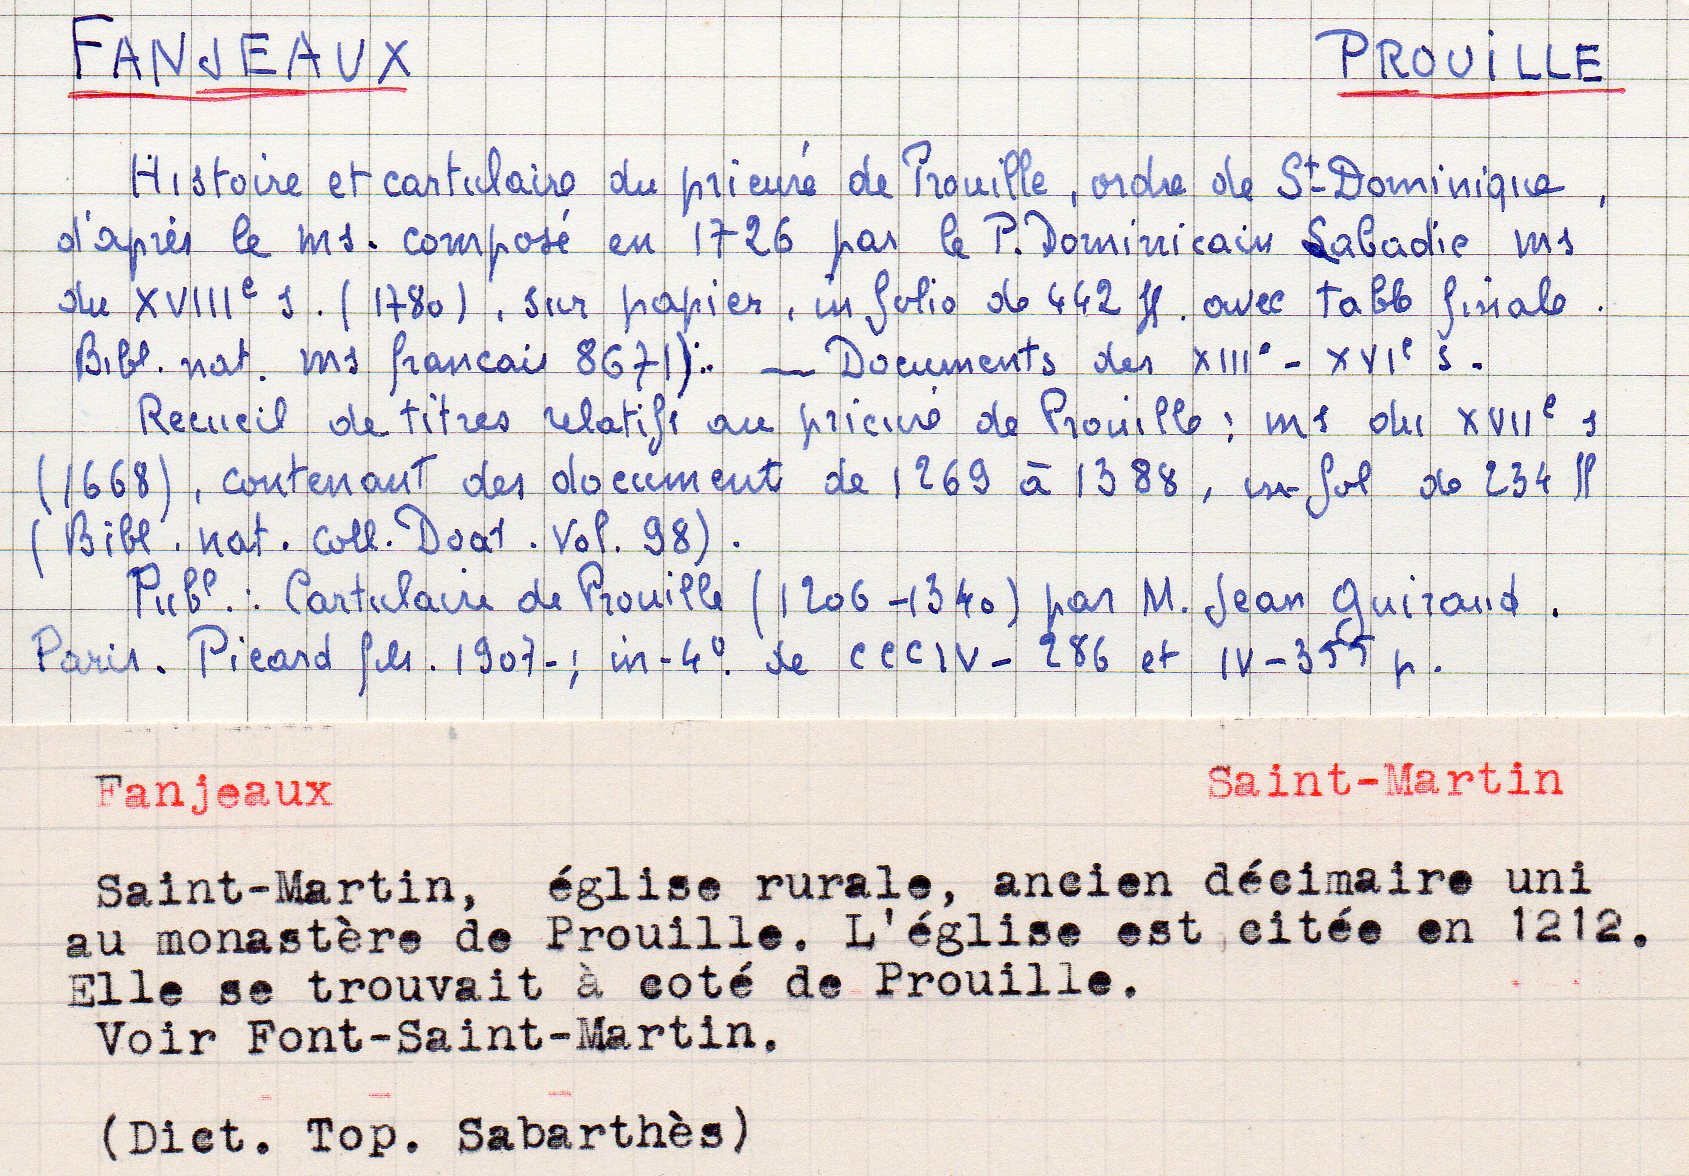 FANJEAUX PROUILLE
Histoire et cartulaire du prieuré de Prouille, ordre de St-Dominique,
d'après le ms. composé en 1726 par le P. Dominicain Labadie ms
du XVIIIe s. (1780), sur papier, in folio de 442 ff. avec table finale.
Bibl. nat. ms francais 8671): — Documents des XIIIe - XVIe s.
Recueil de titres relatifs au prieuré de Prouille; ms du XVIIe s
(1668), contenant des document de 1269 à 1388, in-fol de 234 ff
(Bibl. nat. coll. Doat. vol. 98).
Publ.: Cartulaire de Prouille (1206-1340) par M. Jean Guiraud.
Paris. Picard fils. 1907-; in-4°. de CCCIV-286 et IV-355 p.
Fanjeaux Saint-Martin
Saint-Martin, église rurale, ancien décimaire uni
au monastère de Prouille. L'église est citée en 1212.
Elle se trouvait à coté de Prouille.
Voir Font-Saint-Martin.
(Dict. Top. Sabarthès)